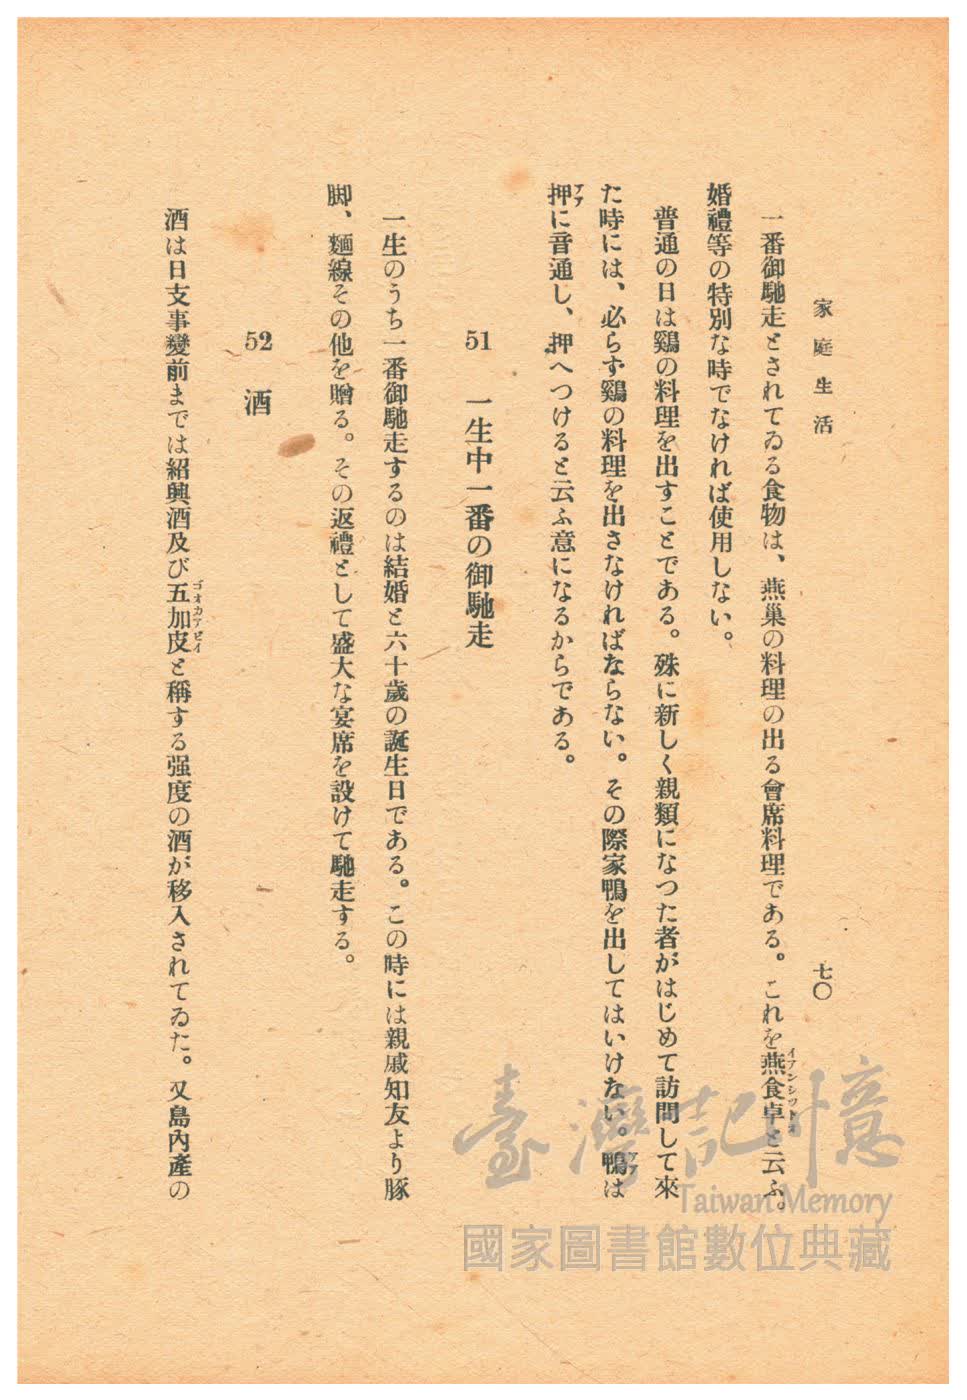 家庭生活
七〇
一番御馳走とされてゐる食物は、燕巢の料理の出る會席料理である。これを燕食卓と云ふ。
イアンシツトオ
婚禮等の特別な時でなければ使用しない。
普通の日は鷄の料理を出すことである。殊に新しく親類になつた者がはじめて訪問して來
た時には、必らず鷄の料理を出さなければならない。その際家鴨を出してはいけない。鴨は
アア
押に音通し、押へつけると云ふ意になるからである。
アア
51 一生中一番の御馳走
一生のうち一番御馳走するのは結婚と六十歲の誕生日である。この時には親戚知友より豚
脚、麵線その他を贈る。その返禮として盛大な宴席を設けて馳走する。
52 酒
酒は日支事變前までは紹興酒及び五加皮と稱する强度の酒が移入されてゐた。又島內產の
ゴオカアピイ
臺灣記憶
Taiwan Memory
國家圖書館數位典藏